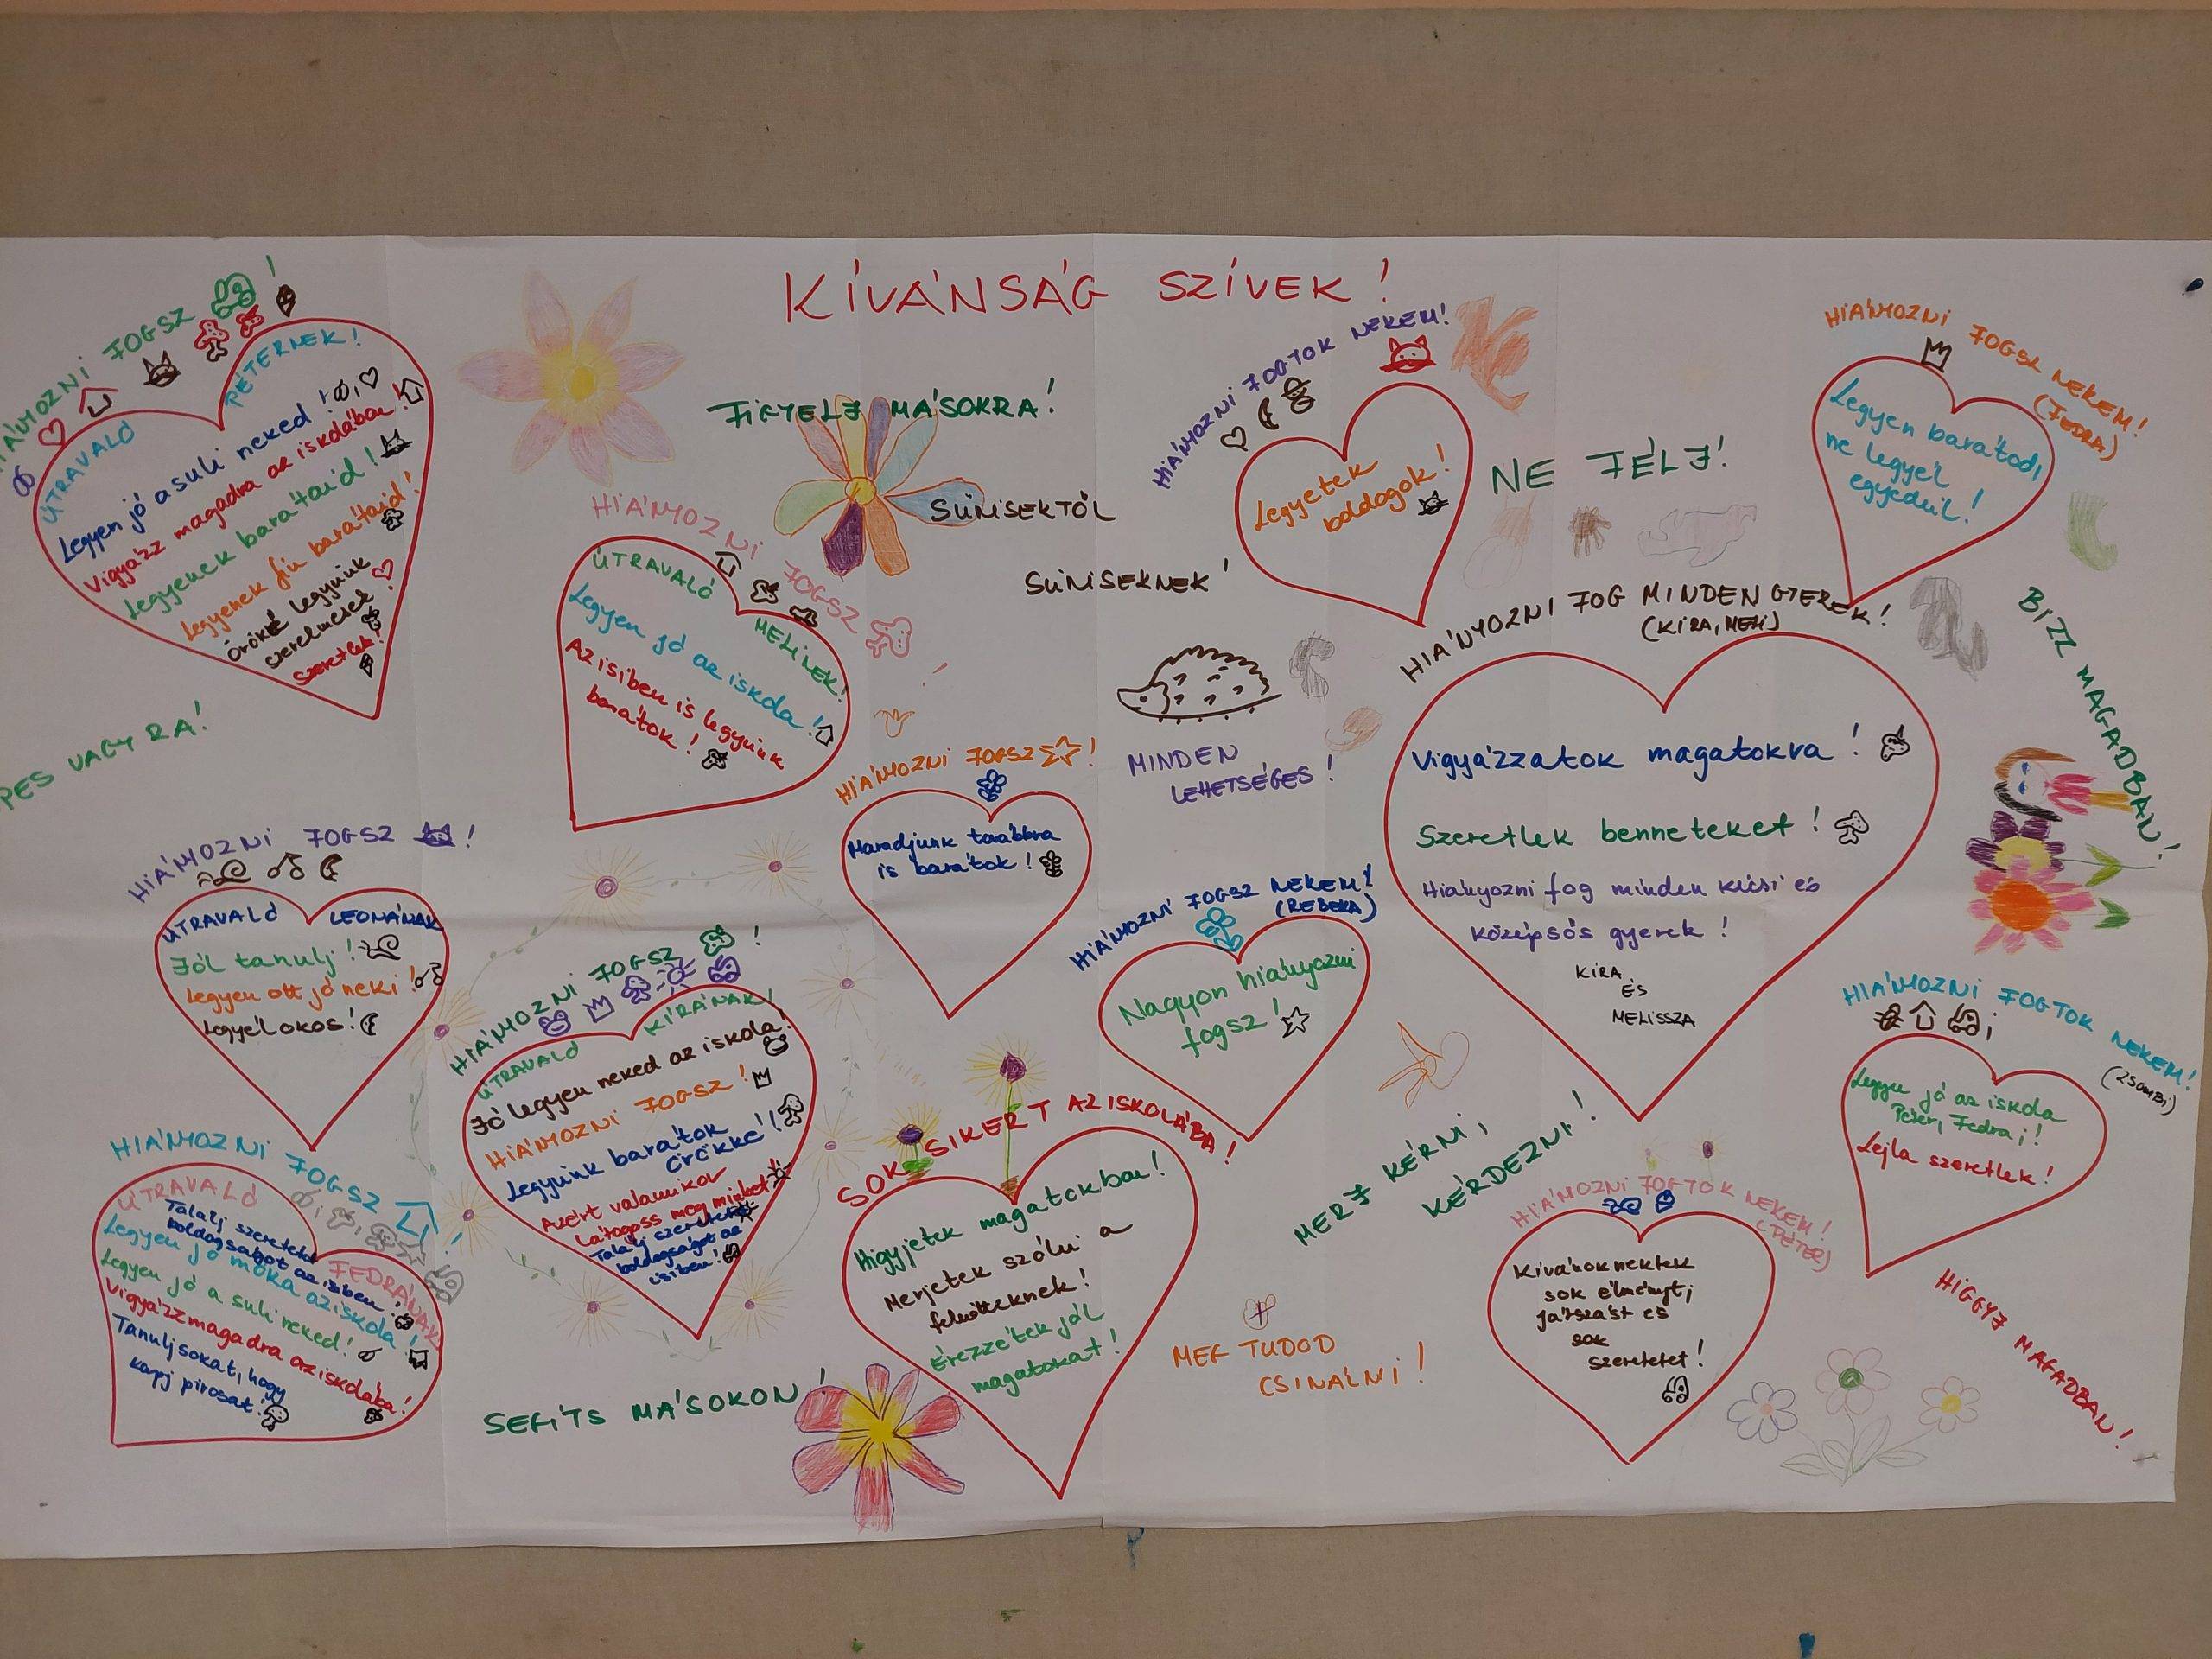 KÍVÁNSÁG SZÍVEK!
HIÁNYOZNI FOGSZ !
ÚTRAVALÓ
PÉTERNEK!
Legyen jó a suli neked!
Vigyázz magadra az iskolában!
Legyenek barátaid!
Legyenek fiú barátaid!
Örökké legyünk
szerelmesek!
Szeretlek!
PES VAGY RA!
FIGYELJ MÁSOKRA!
SÜNISEKTŐL
SÜNISEKNEK!
HIÁNYOZNI FOGSZ !
ÚTRAVALÓ
MELINEK!
Legyen jó az iskola!
Az isiben is legyünk
barátok!
HIÁNYOZNI FOGTOK NEKEM!
Legyetek
boldogok!
NE FÉLJ!
HIÁNYOZNI FOGSZ NEKEM!
(FEDRA)
Legyen barátod,
ne legyél
egyedül!
BÍZZ MAGADBAN!
HIÁNYOZNI FOG MINDEN GYEREK!
(KIRA, MELI)
Vigyázzatok magatokra!
Szeretlek benneteket!
Hiányozni fog minden kicsi és
középsős gyerek!
KIRA
ÉS
MELISSZA
MINDEN
LEHETSÉGES!
HIÁNYOZNI FOGSZ !
Maradjunk továbbra
is barátok!
HIÁNYOZNI FOGSZ !
ÚTRAVALÓ LEONÁNAK
Jól tanulj!
Legyen ott jó neki!
Legyél okos!
HIÁNYOZNI FOGSZ !
ÚTRAVALÓ
KIRÁNAK!
Jó legyen neked az iskola!
HIÁNYOZNI FOGSZ!
Legyünk barátok
örökké!
Azért valamikor
látogass meg minket!
Találj szeretetet
boldogságot az
isiben!
HIÁNYOZNI FOGSZ NEKEM!
(REBEKA)
Nagyon hiányozni
fogsz!
HIÁNYOZNI FOGTOK NEKEM!
(ZSOMBI)
Legyen jó az iskola
Péter, Fedra,!
Lejla szeretlek!
HIÁNYOZNI FOGSZ !
ÚTRAVALÓ
FEDRÁNAK
Találj szeretetet
boldogságot az isiben!
Legyen jó móka az iskola!
Legyen jó a suli neked!
Vigyázz magadra az iskolába!
Tanulj sokat, hogy
kapj pirosat!
SOK SIKERT AZ ISKOLÁBA!
Higyjetek magatokban!
Merjetek szólni a
felnőtteknek!
Érezzétek jól
magatokat!
MERJ KÉRNI,
KÉRDEZNI!
HIÁNYOZNI FOGTOK NEKEM!
(PÉTER)
Kívánok nektek
sok élményt,
játszást és
sok
szeretetet!
HIGGYJ MAGADBAN!
MEG TUDOD
CSINÁLNI!
SEGÍTS MÁSOKON!